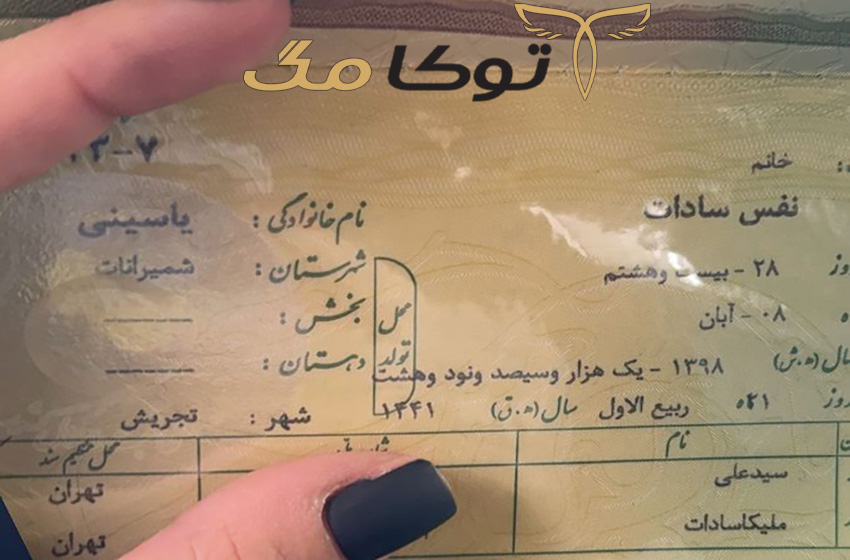 توکا مگ
۳-۷
خانم
نفس سادات
نام خانوادگی : یاسینی
روز ۲۸ - بیست وهشتم
شهرستان : شمیرانات
۰۸ - آبان
بخش :
محل تولد
سال (ه.ش) ۱۳۹۸ - یک هزار وسیصد ونود وهشت
دهستان :
روز ۲۱ ماه ربیع الاول سال (ه.ق) ۱۴۴۱
شهر : تجریش
نام
محل تنظیم سند
سیدعلی
تهران
ملیکاسادات
تهران